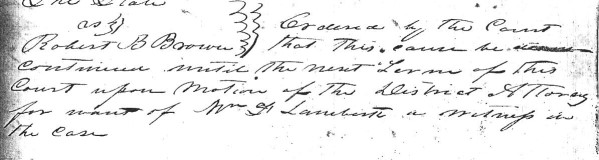 The State
vs
Robert B Brown
Ordered by the Court
that this cause be
continued until the next Term of this
Court upon Motion of the District Attorney
for want of Wm F Lambert a witness in
the case